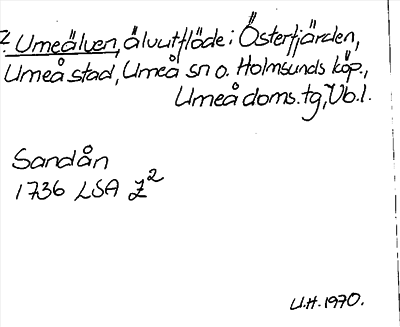 2 Umeälven, älvutflöde i Österfjärden,
Umeå stad, Umeå sn o. Holmsunds köp.,
Umeå doms. tg, Vb.l.
Sandån
1736 LSA Z²
U.H. 1970.